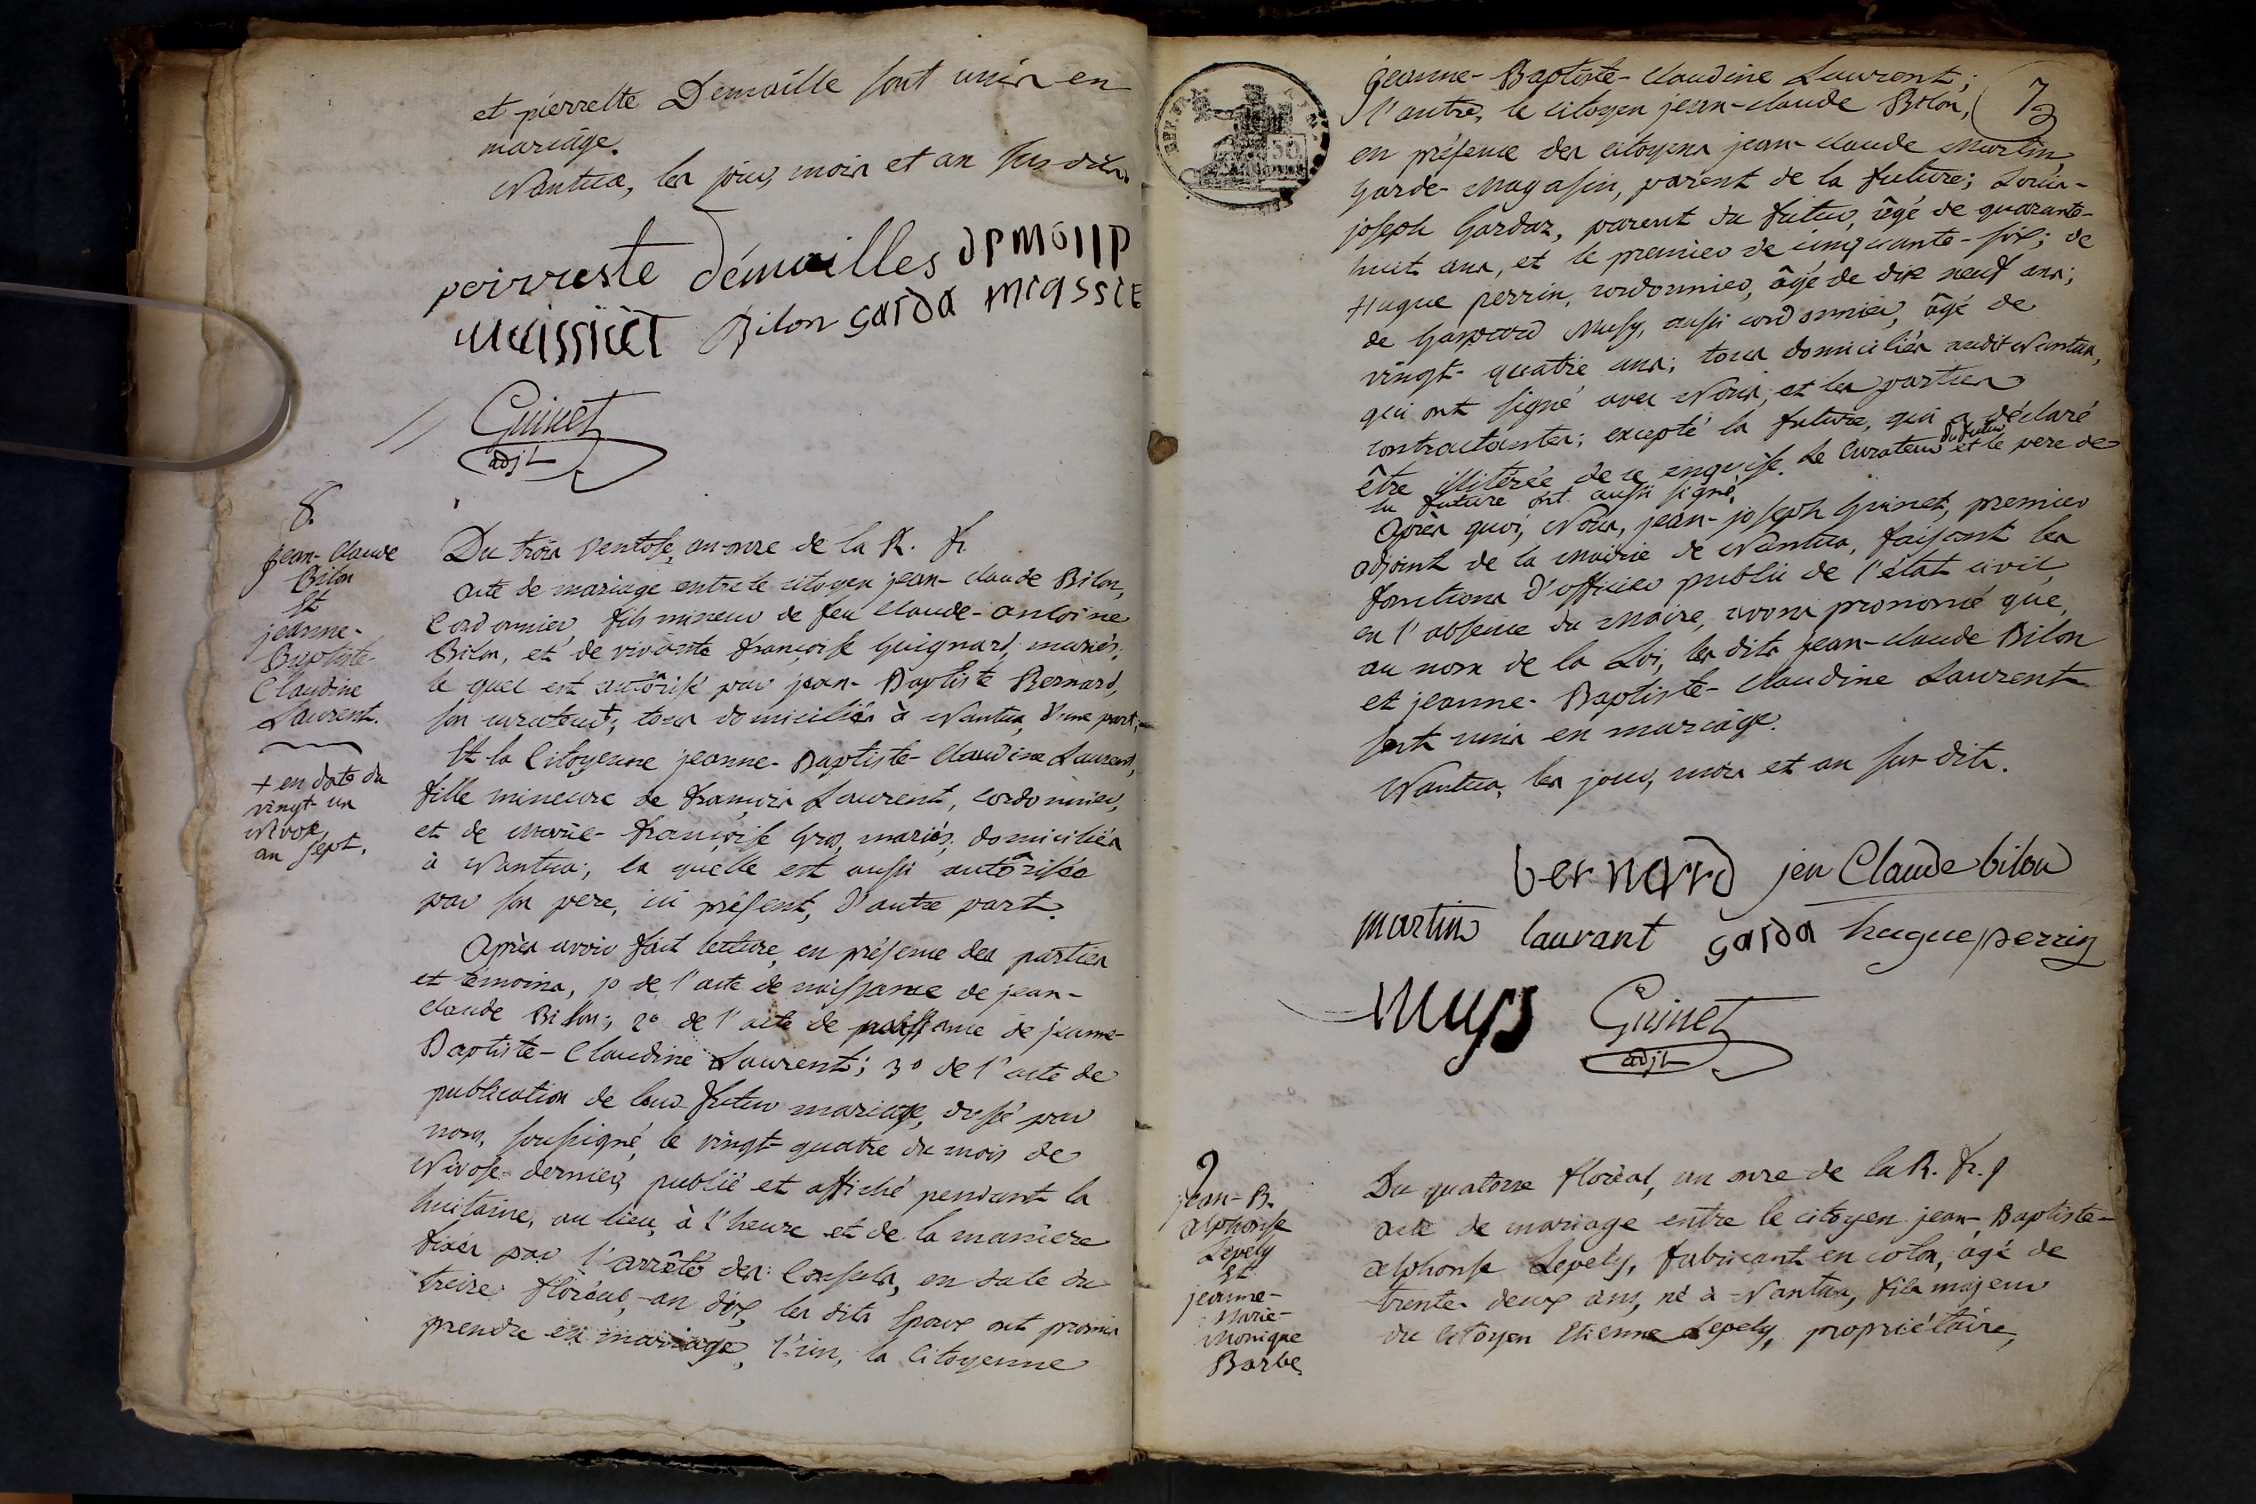 et pierrette Demaille sont unis en
mariage.
Nantua, les jour, mois et an sus-dits.
peirreste démailles
Bilon garda
Guinet
adjt
8.
jean-Claude
Bilon
Et
jeanne-
Baptiste-
Claudine
Laurent.
+ en date du
vingt-un
Nivose,
an sept.
Du trois Ventose, an onze de la R. fr.
acte de mariage entre le citoyen jean-Claude Bilon,
Cordonnier, fils mineur de feu Claude-antoine
Bilon, et de vivante françoise Guignard, mariés;
le quel est autôrisé par jean-Baptiste Bernard,
son curateur; tous domiciliés à Nantua, d'une part;
Et la Citoyenne jeanne-Baptiste-Claudine Laurent,
fille mineure de françois Laurent, cordonnier,
et de Marie-françoise Gros, mariés, domiciliés
à Nantua; la quelle est aussi autôrisée
par son pere, ici présent, d'autre part.
Après avoir fait lecture, en présence des parties
et témoins, 1º de l'acte de naissance de jean-
Claude Bilon; 2º de l'acte de naissance de jeanne-
Baptiste-Claudine Laurent; 3º de l'acte de
publication de leur futur mariage, dressé par
nous, soussigné, le vingt-quatre du mois de
Nivose dernier, publié et affiché pendant la
huitaine, au lieu, à l'heure et de la maniere
fixés par l'arrêté des Consuls, en date du
treize floréal, an dix, les dits Epoux ont promis
prendre en mariage, l'un, la Citoyenne
jeanne-Baptiste-Claudine Laurent;
l'autre, le citoyen jean-Claude Bilon,
en présence des citoyens jean-Claude Martin
garde-magasin, parent de la future; Louis-
joseph Gardaz, parent du futur, âgé de quarante-
huit ans, et le premier de cinquante-six; de
Hugue perrin, cordonnier, âgé de dix neuf ans;
de Gaspard Musy, aussi cordonnier, âgé de
vingt-quatre ans; tous domiciliés audit Nantua,
qui ont signé avec Nous, et les parties
contractantes; excepté la future, qui a déclaré
être illitérée de ce enquise. Le Curateur du futur et le pere de
la future ont aussi signé.
Après quoi, Nous, jean-joseph Guinet, premier
adjoint de la Mairie de Nantua, faisant les
fonctions d'officier public de l'état civil,
en l'absence du Maire, avons prononcé que,
au nom de la Loi, les dits jean-Claude Bilon
et jeanne-Baptiste-Claudine Laurent
sont unis en mariage.
Nantua, les jour, mois et an sus-dits.
bernard jen Claude bilon
martin laurant garda hugue perrin
Musy Guinet
adjt
9
jean-B.
alphonse
Lepely
Et
jeanne-
Marie-
Monique
Barbe
Du quatorze floréal, an onze de la R. fr.
acte de mariage entre le citoyen jean-Baptiste-
alphonse Lepely, fabricant en coton, âgé de
trente-deux ans, né à Nantua, fils majeur
du Citoyen Etienne Lepely, propriétaire,